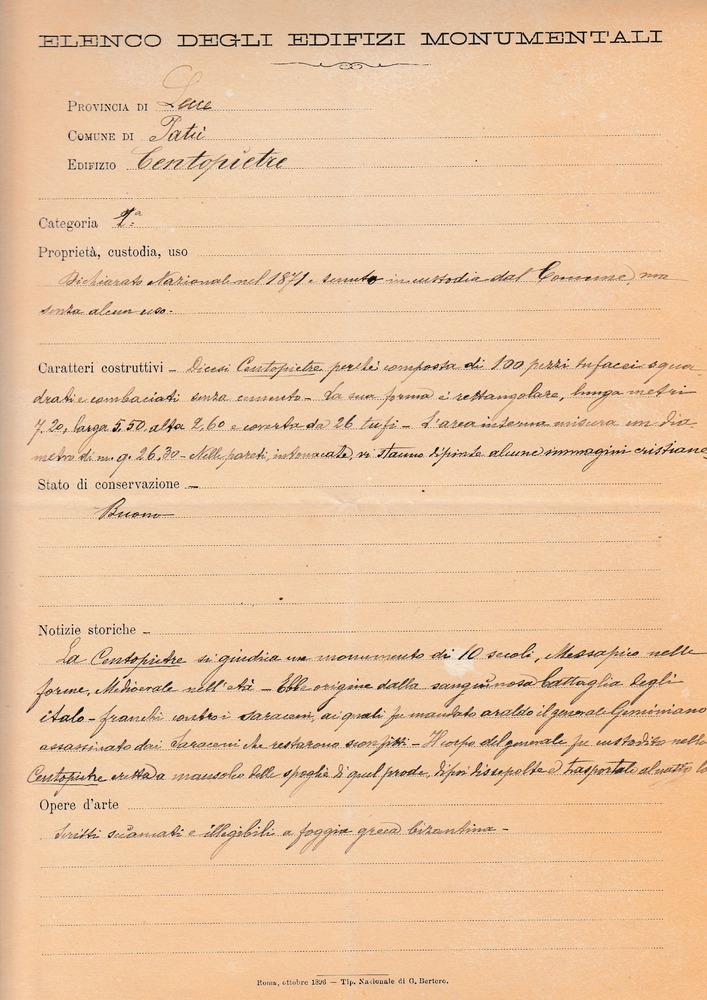 ELENCO DEGLI EDIFIZI MONUMENTALI
PROVINCIA DI Lecce
COMUNE DI Patù
EDIFIZIO Centopietre
Categoria 1.a
Proprietà, custodia, uso
Dichiarato Nazionale nel 1871 e tenuto in custodia dal Comune, ma
senza alcun uso.
Caratteri costruttivi – Dicesi Centopietre perchè composta di 100 pezzi tufacei squa-
drati e combaciati senza cemento – La sua forma è rettangolare, lunga metri
7.20, larga 5.50, alta 2,60 e coverta da 26 tufi – L'area interna misura un dia
metro di m. q. 26,30 – Nelle pareti, intonacate, vi stanno dipinte alcune immagini cristiane
Stato di conservazione –
Buono
Notizie storiche –
La Centopietre si giudica un monumento di 10 secoli, Messapico nelle
forme, Medioevale nell'età – Ebbe origine dalla sanguinosa battaglia degli
italo-franchi contro i saraceni, ai quali fu mandato araldo il generale Geminiano
assassinato dai Saraceni che restarono sconfitti – Il corpo del generale fu custodito nella
Centopietre eretta a mausoleo delle spoglie di quel prode, dipoi disepolte e trasportate
Opere d'arte
Scritti e illegibili a foggia greca bizantina –
Roma, ottobre 1896 — Tip. Nazionale di G. Bertero.